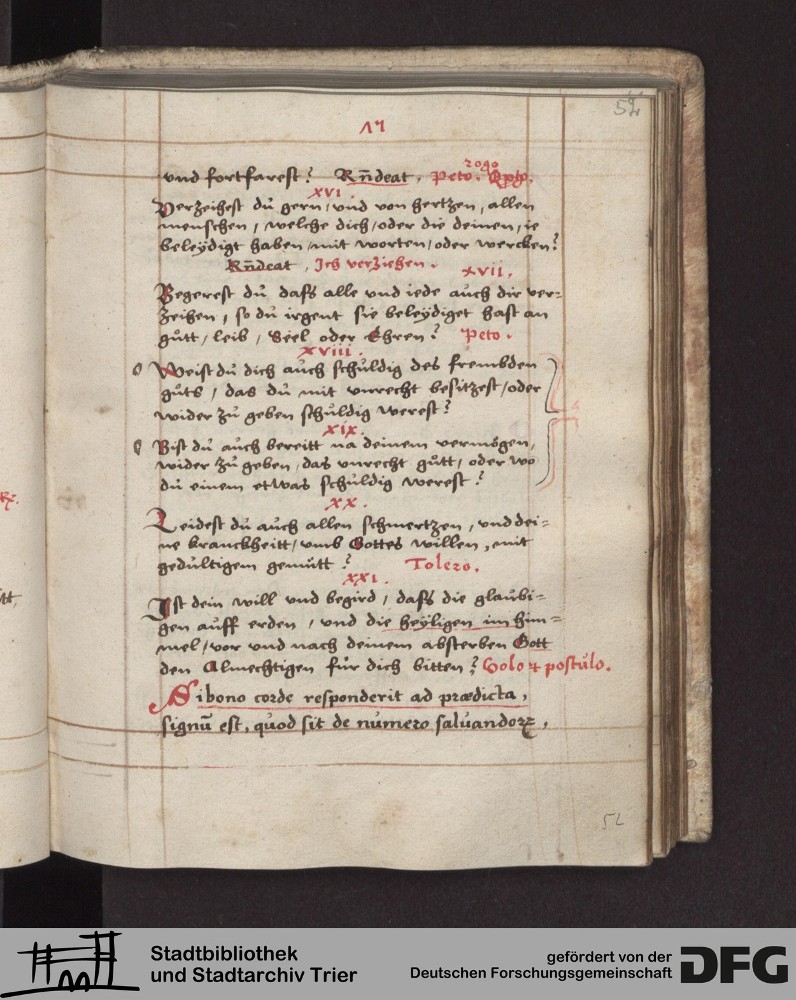 52
17
rogo
und fortfarest? Rn̄deat, Peto. Opto.
XVI.
Verzeihest du gern, und von hertzen, allen
menschen, welche dich, oder die deinen, ie
beleÿdigt haben, mit worten, oder wercken?
Rn̄deat, Ich verziehen.
XVII.
Begerest du daſs alle und iede auch dir ver=
zeihen, so du irgent sie beleÿdiget hast an
gůtt, leib, Seel oder Ehren? Peto.
XVIII.
Weist du dich auch schuldig des frembden
gůts, das du mit unrecht besitzest, oder
wider zu geben schuldig werest?
XIX.
Bist du auch bereitt na deinem vermögen,
wider zu geben, das unrecht gůtt, oder wo
du einem etwas schuldig werest?
XX.
Leidest du auch allen schmertzen, und dei=
ne kranckheitt, umb Gottes willen, mit
gedultigem gemůtt? Tolero.
XXI.
Ist dein will und begird, daſs die glaubi=
gen auff erden, und die heÿligen im him=
mel, vor und nach deinem absterben Gott
den Almechtigen für dich bitten? Volo & postulo.
Si bono corde responderit ad prædicta,
signū est, quod sit de numero saluandoꝝ,
52
Stadtbibliothek
und Stadtarchiv Trier
gefördert von der
Deutschen Forschungsgemeinschaft
DFG